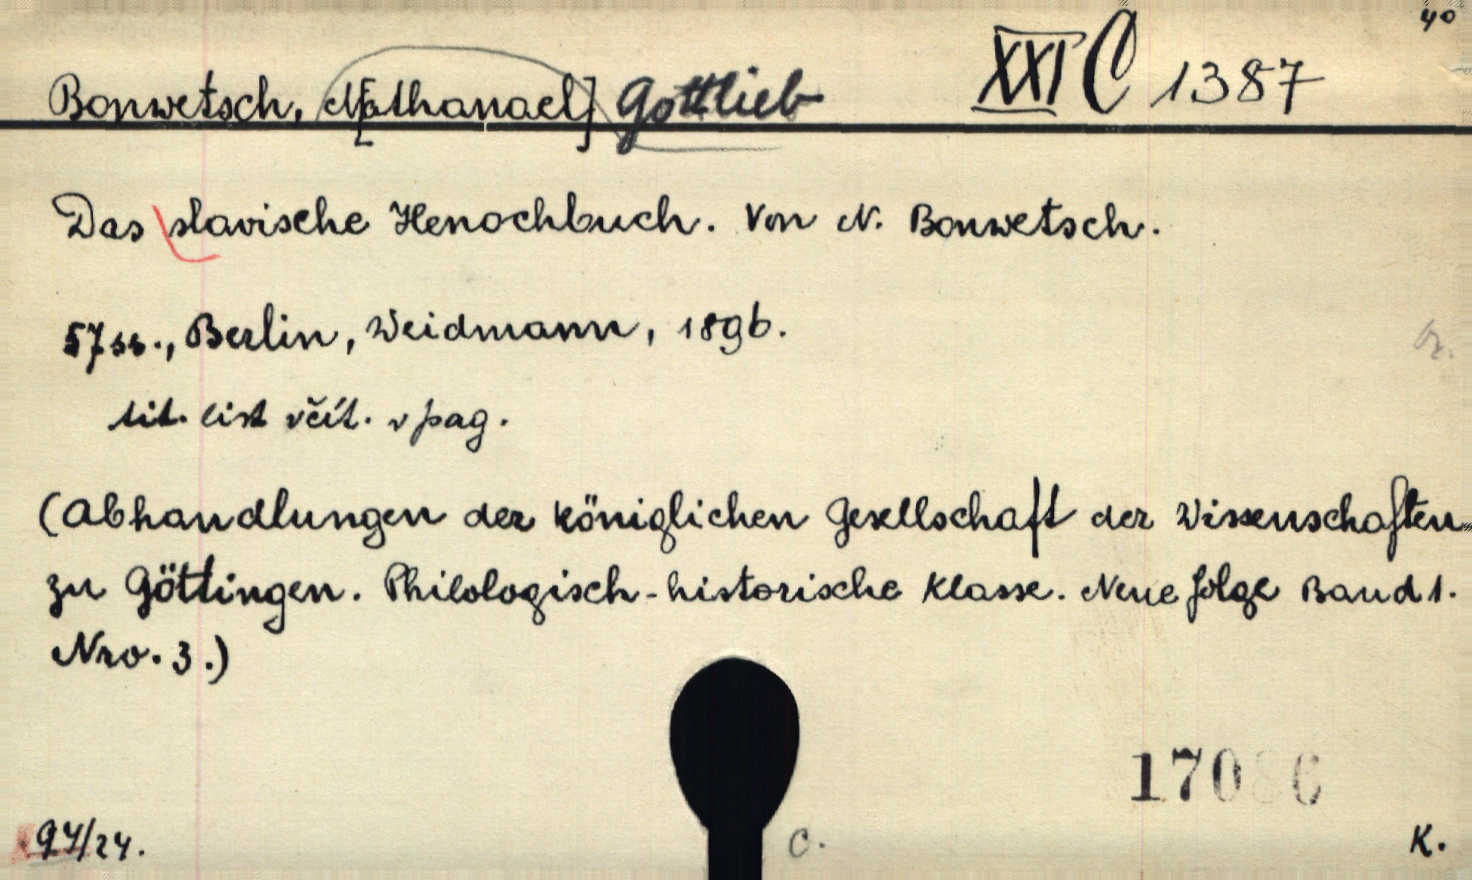 40
Bonwetsch, N[athanael] Gottlieb XXI C 1387
Das slavische Henochbuch. Von N. Bonwetsch.
57 ss., Berlin, Weidmann, 1896.
tit. list včít. v pag.
(Abhandlungen der königlichen Gesellschaft der Wissenschaften
zu Göttingen. Philologisch-historische Klasse. Neue Folge Band 1.
Nro. 3.)
17086
97/24. C. K.